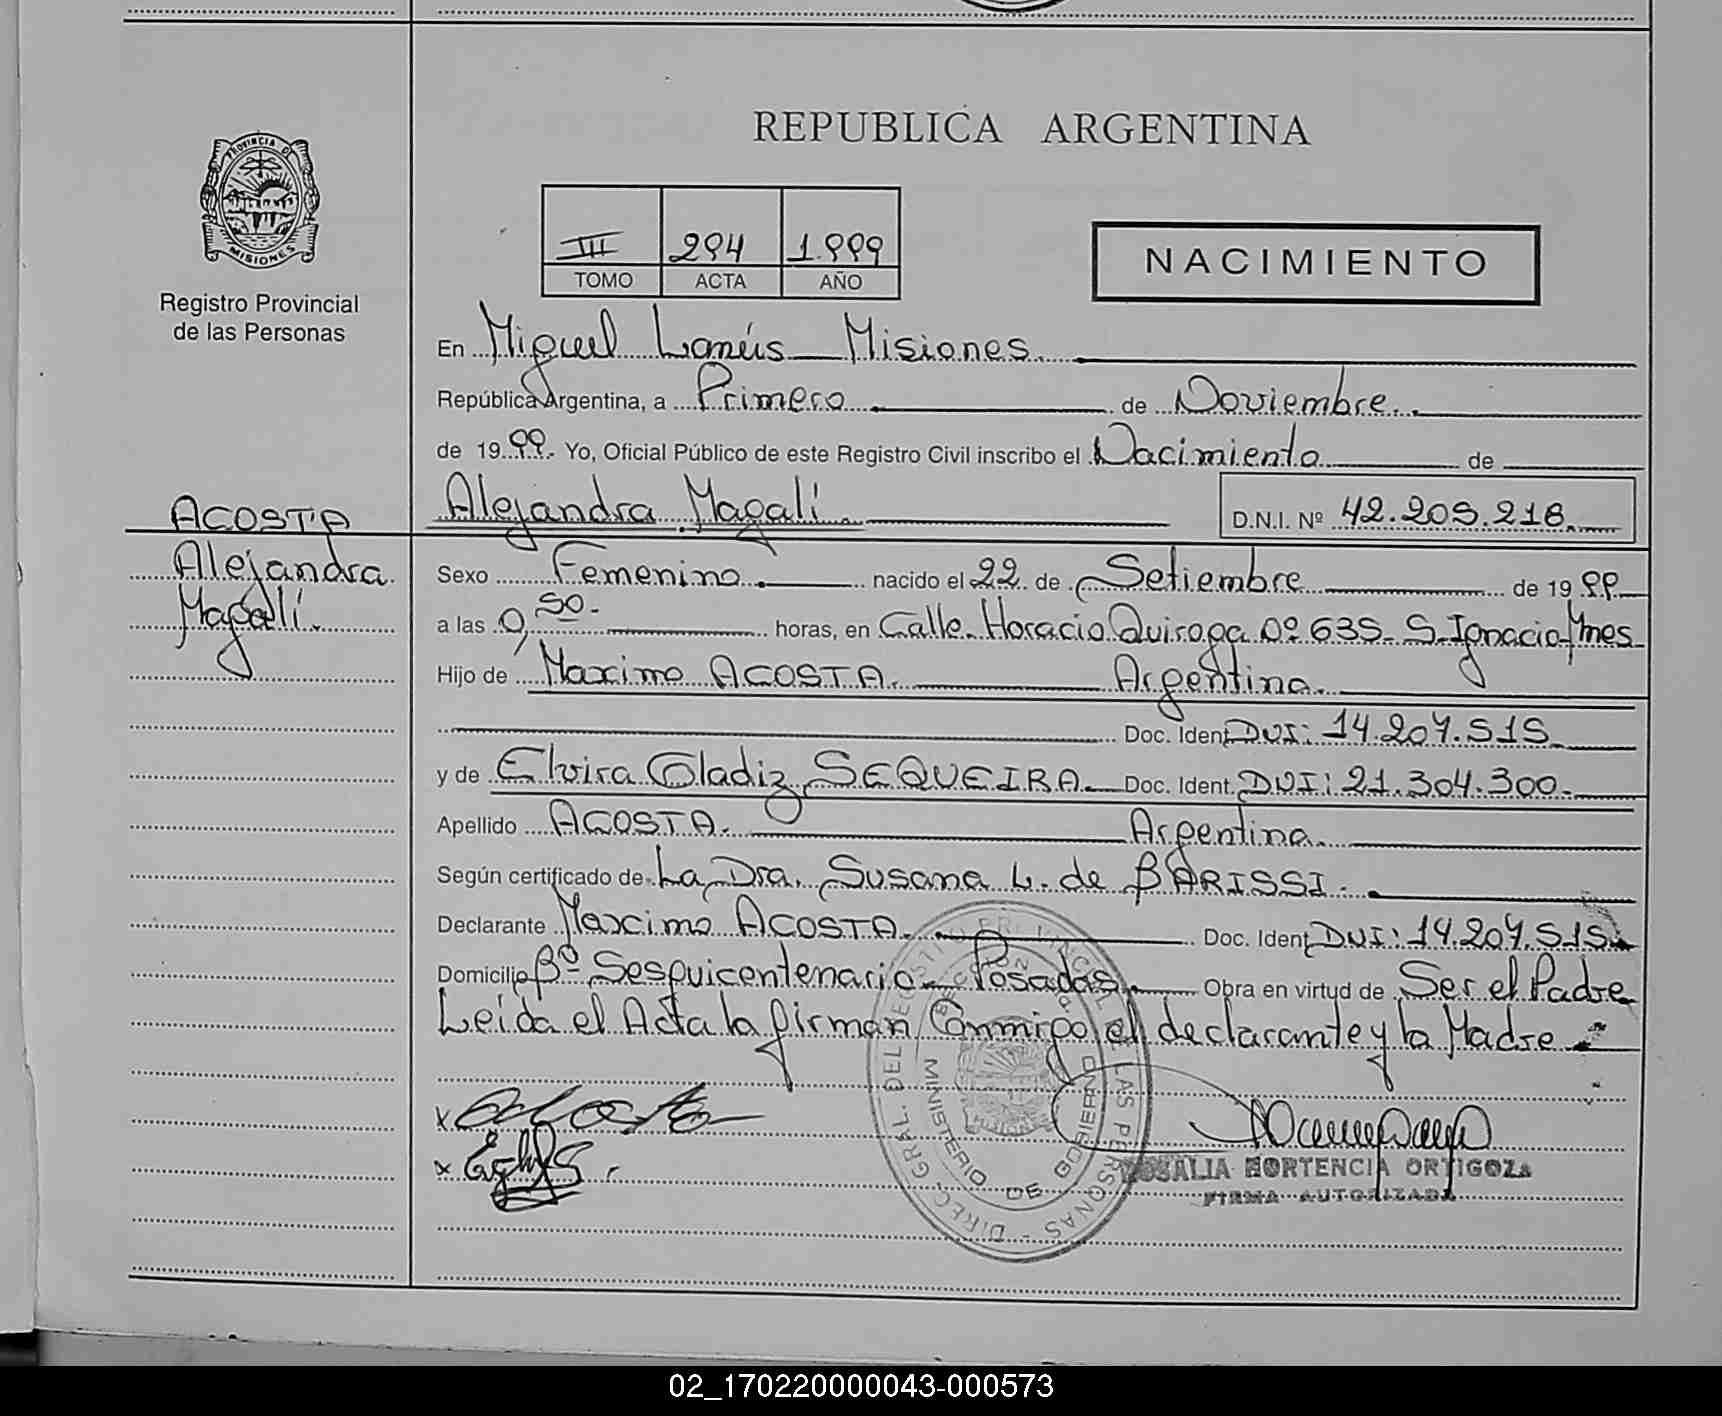 REPUBLICA ARGENTINA
PROVINCIA D
MISIONES
Registro Provincial
de las Personas
III 294 1.999
TOMO ACTA AÑO
NACIMIENTO
En Miguel Lanús Misiones.
República Argentina, a Primero de Noviembre.
de 1999. Yo, Oficial Público de este Registro Civil inscribo el Nacimiento de
ACOSTA
Alejandra
Magalí.
Alejandra Magalí.
D.N.I. Nº 42.205.218.
Sexo Femenino. nacido el 22 de Setiembre de 1999
a las 0,50. horas, en Calle Horacio Quiroga nº 635 S. Ignacio-Mnes
Hijo de Maximo ACOSTA. Argentina.
Doc. Ident DNI: 14.207.515
y de Elvira Gladiz SEQUEIRA Doc. Ident. DNI: 21.304.300.
Apellido ACOSTA. Argentina.
Según certificado de La Dra. Susana L. de BARISSI.
Declarante Maximo ACOSTA. Doc. Ident DNI: 14.207.515
Domicilio Bº Sesquicentenario Posadas. Obra en virtud de Ser el Padre
Leida el Acta la firman Conmigo el declarante y la Madre
x
x
DIREC. GRAL. DEL REGISTRO PROVINCIAL DE LAS PERSONAS
MINISTERIO DE GOBIERNO
ROSALIA HORTENCIA ORTIGOZA
FIRMA AUTORIZADA
02_170220000043-000573